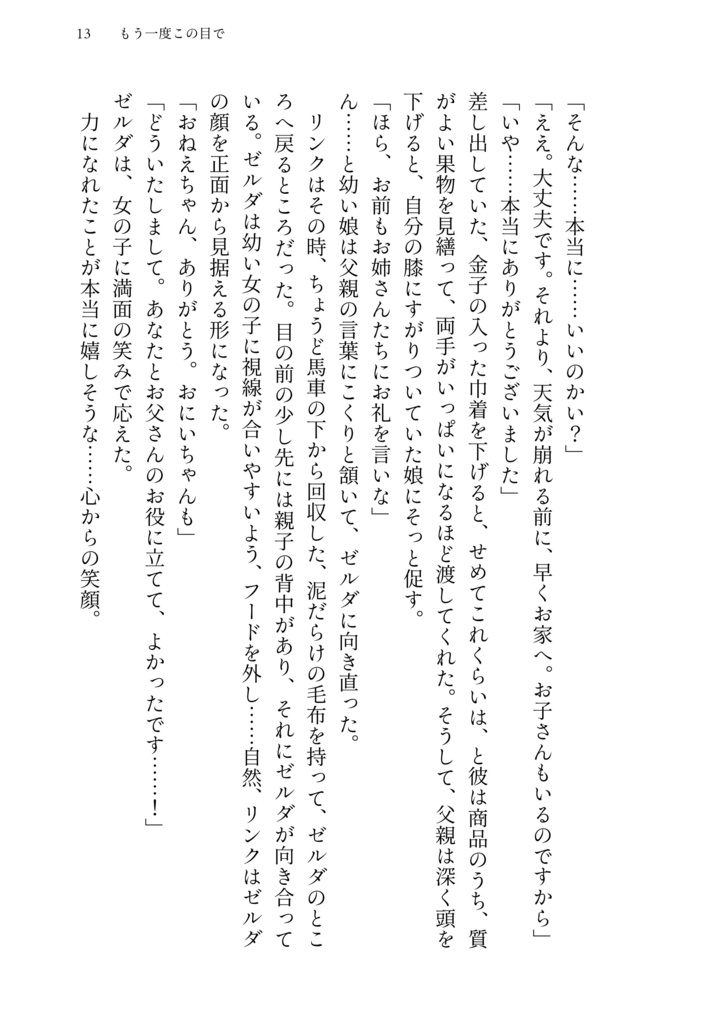 13　もう一度この目で
「そんな……本当に……いいのかい？」
「ええ。大丈夫です。それより、天気が崩れる前に、早くお家へ。お子さんもいるのですから」
「いや……本当にありがとうございました」
差し出していた、金子の入った巾着を下げると、せめてこれくらいは、と彼は商品のうち、質
がよい果物を見繕って、両手がいっぱいになるほど渡してくれた。そうして、父親は深く頭を
下げると、自分の膝にすがりついていた娘にそっと促す。
「ほら、お前もお姉さんたちにお礼を言いな」
ん……と幼い娘は父親の言葉にこくりと頷いて、ゼルダに向き直った。
　リンクはその時、ちょうど馬車の下から回収した、泥だらけの毛布を持って、ゼルダのとこ
ろへ戻るところだった。目の前の少し先には親子の背中があり、それにゼルダが向き合って
いる。ゼルダは幼い女の子に視線が合いやすいよう、フードを外し……自然、リンクはゼルダ
の顔を正面から見据える形になった。
「おねえちゃん、ありがとう。おにいちゃんも」
「どういたしまして。あなたとお父さんのお役に立てて、よかったです……！」
ゼルダは、女の子に満面の笑みで応えた。
　力になれたことが本当に嬉しそうな……心からの笑顔。